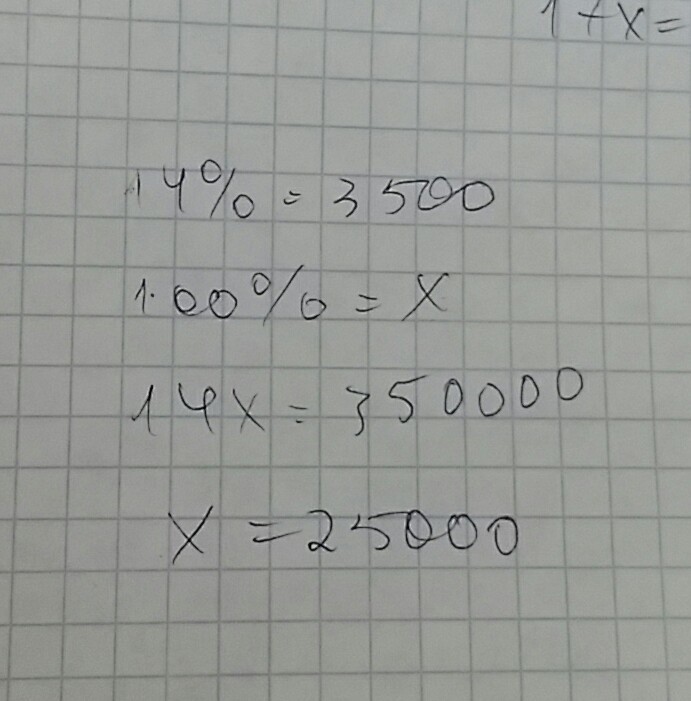 1+x=
14% = 3500
100% = x
14x = 350000
x = 25000